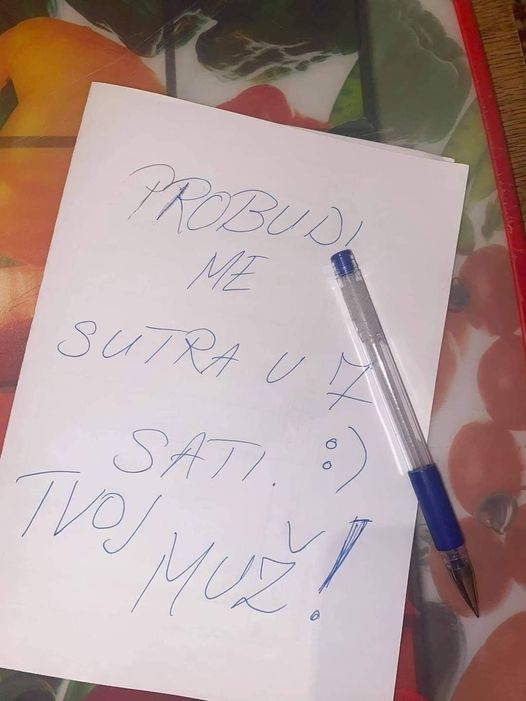 PROBUDI
ME
SUTRA U 7
SATI. :)
TVOJ
MUŽ!